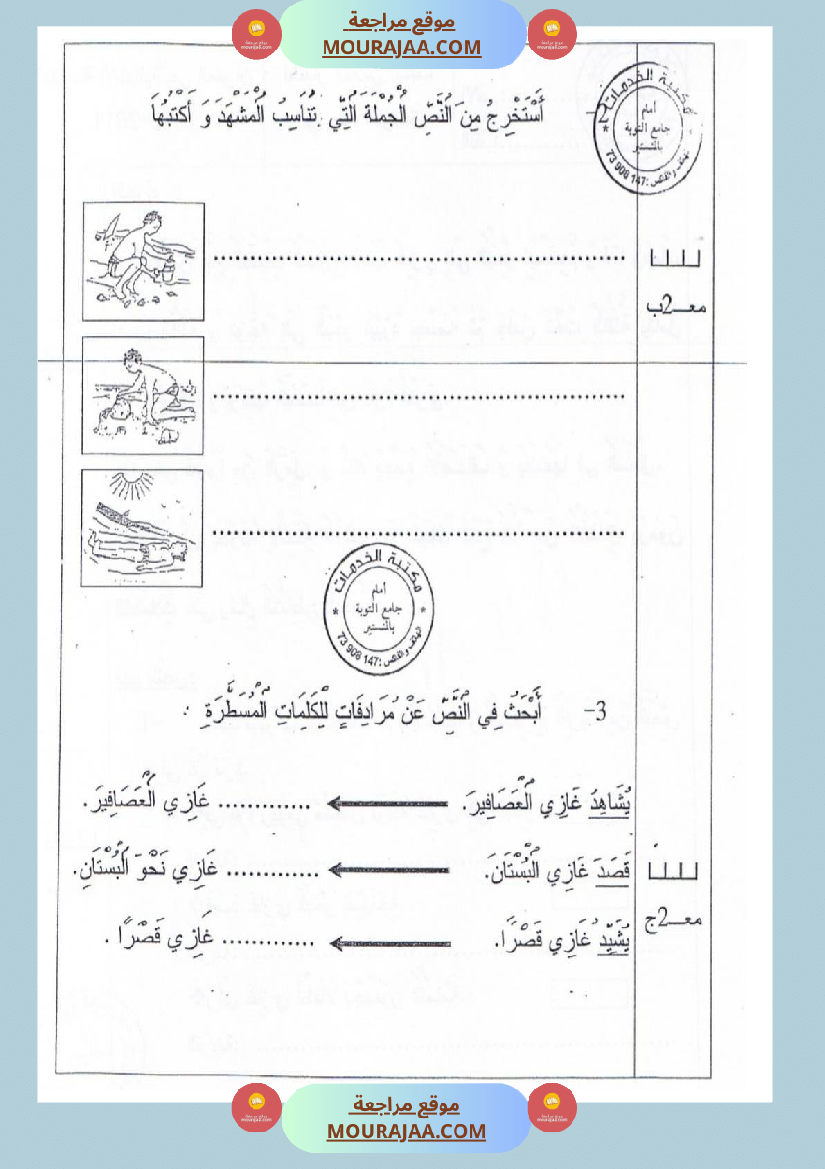 موقع مراجعة
MOURAJAA.COM
مكتبة الخدمات
أمام
جامع التوبة
بالنستير
الهاتف والفاكس: 147 908 73
2- أَسْتَخْرِجُ مِنَ النَّصِّ الْجُمْلَةَ الَّتِي تُنَاسِبُ الْمَشْهَدَ وَ أَكْتُبُهَا
معـ2ـب
مكتبة الخدمات
أمام
جامع التوبة
بالنستير
الهاتف والفاكس: 147 908 73
3- أَبْحَثُ فِي النَّصِّ عَنْ مُرَادِفَاتٍ لِلْكَلِمَاتِ الْمُسَطَّرَةِ :
يُشَاهِدَ غَازِي الْعَصَافِيرَ. ............ غَازِي الْعَصَافِيرَ.
قَصَدَ غَازِي الْبُسْتَانَ. ............ غَازِي نَحْوَ الْبُسْتَانِ.
معـ2ـج
يُشَيِّدُ غَازِي قَصْرًا. ............ غَازِي قَصْرًا .
موقع مراجعة
MOURAJAA.COM